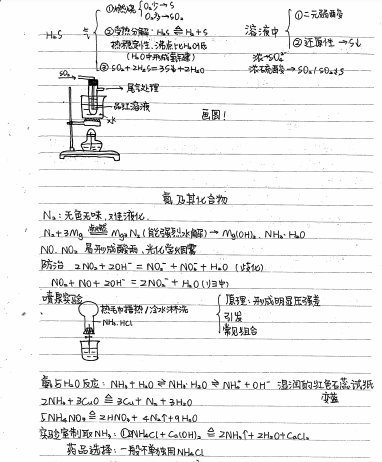 H₂S 气 { ①燃烧 { O₂少→S
O₂多→SO₂
②受热分解: H₂S ≜ H₂+S
热稳定性、沸点比H₂O低
(H₂O中形成氢键)
③ SO₂+2H₂S=3S↓+2H₂O
溶液中 { ①二元弱酸
②还原性 →S↓
浓→SO₂
浓硫酸→SO₂/S
SO₂
尾气处理
品红溶液
画图!
氮及其化合物
N₂: 无色无味, 难液化.
N₂+3Mg 点燃 Mg₃N₂ (能强烈水解) → Mg(OH)₂. NH₃·H₂O
NO. NO₂ 易形成酸雨, 光化学烟雾
防治 2NO₂+2OH⁻ = NO₃⁻+NO₂⁻+H₂O (歧化)
NO₂+NO+2OH⁻ = 2NO₂⁻+H₂O (归中)
喷泉实验
热毛巾捂热/冷水淋洗
NH₃.HCl
{ 原理: 形成明显压强差
引发
常见组合
氨与H₂O反应: NH₃+H₂O ⇌ NH₃·H₂O ⇌ NH₄⁺+OH⁻ 湿润的红色石蕊试纸
变蓝
2NH₃+3CuO ≜ 3Cu+N₂+3H₂O
5NH₄NO₃ ≜ 2HNO₃+4N₂↑+9H₂O
实验室制取NH₃: ①2NH₄Cl+Ca(OH)₂ ≜ 2NH₃↑+2H₂O+CaCl₂
药品选择: 一般不单独用NH₄Cl